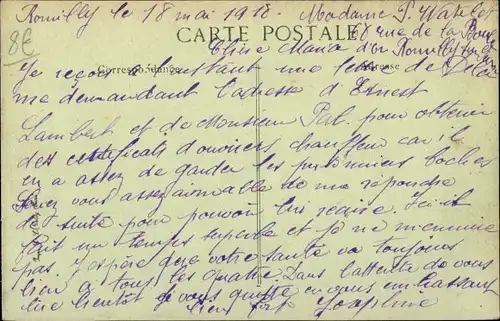 Romilly le 18 mai 1918. Madame P.
8€
CARTE POSTALE
rue de la
Romilly sur
Correspondance
Adresse
Je reçois à l'instant une lettre de
me demandant l'adresse d'Ernest
Lambert et de Monsieur Pal. pour obtenir
des certificats d'ouvriers chauffeur car il
en a assez de garder les prisonniers boches
Soyez vous assez aimable de me répondre
de suite pour pouvoir lui écrire. Ici il
fait un temps superbe et je ne m'ennuie
pas. J'espère que votre santé va toujours
bien à tous les quatre Dans l'attente de vous
lire bientôt je vous quitte en vous embrassant
bien fort Joséphine